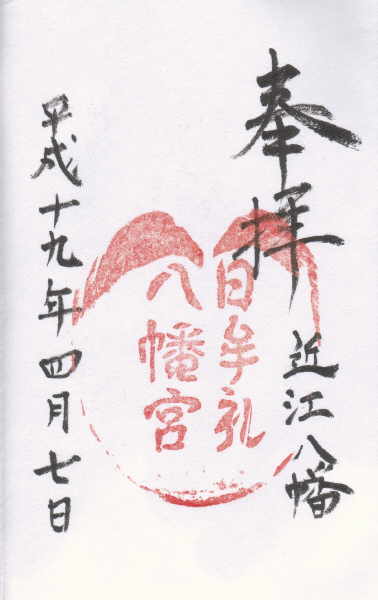 奉拝
近江八幡
日牟礼
八幡宮
平成十九年四月七日